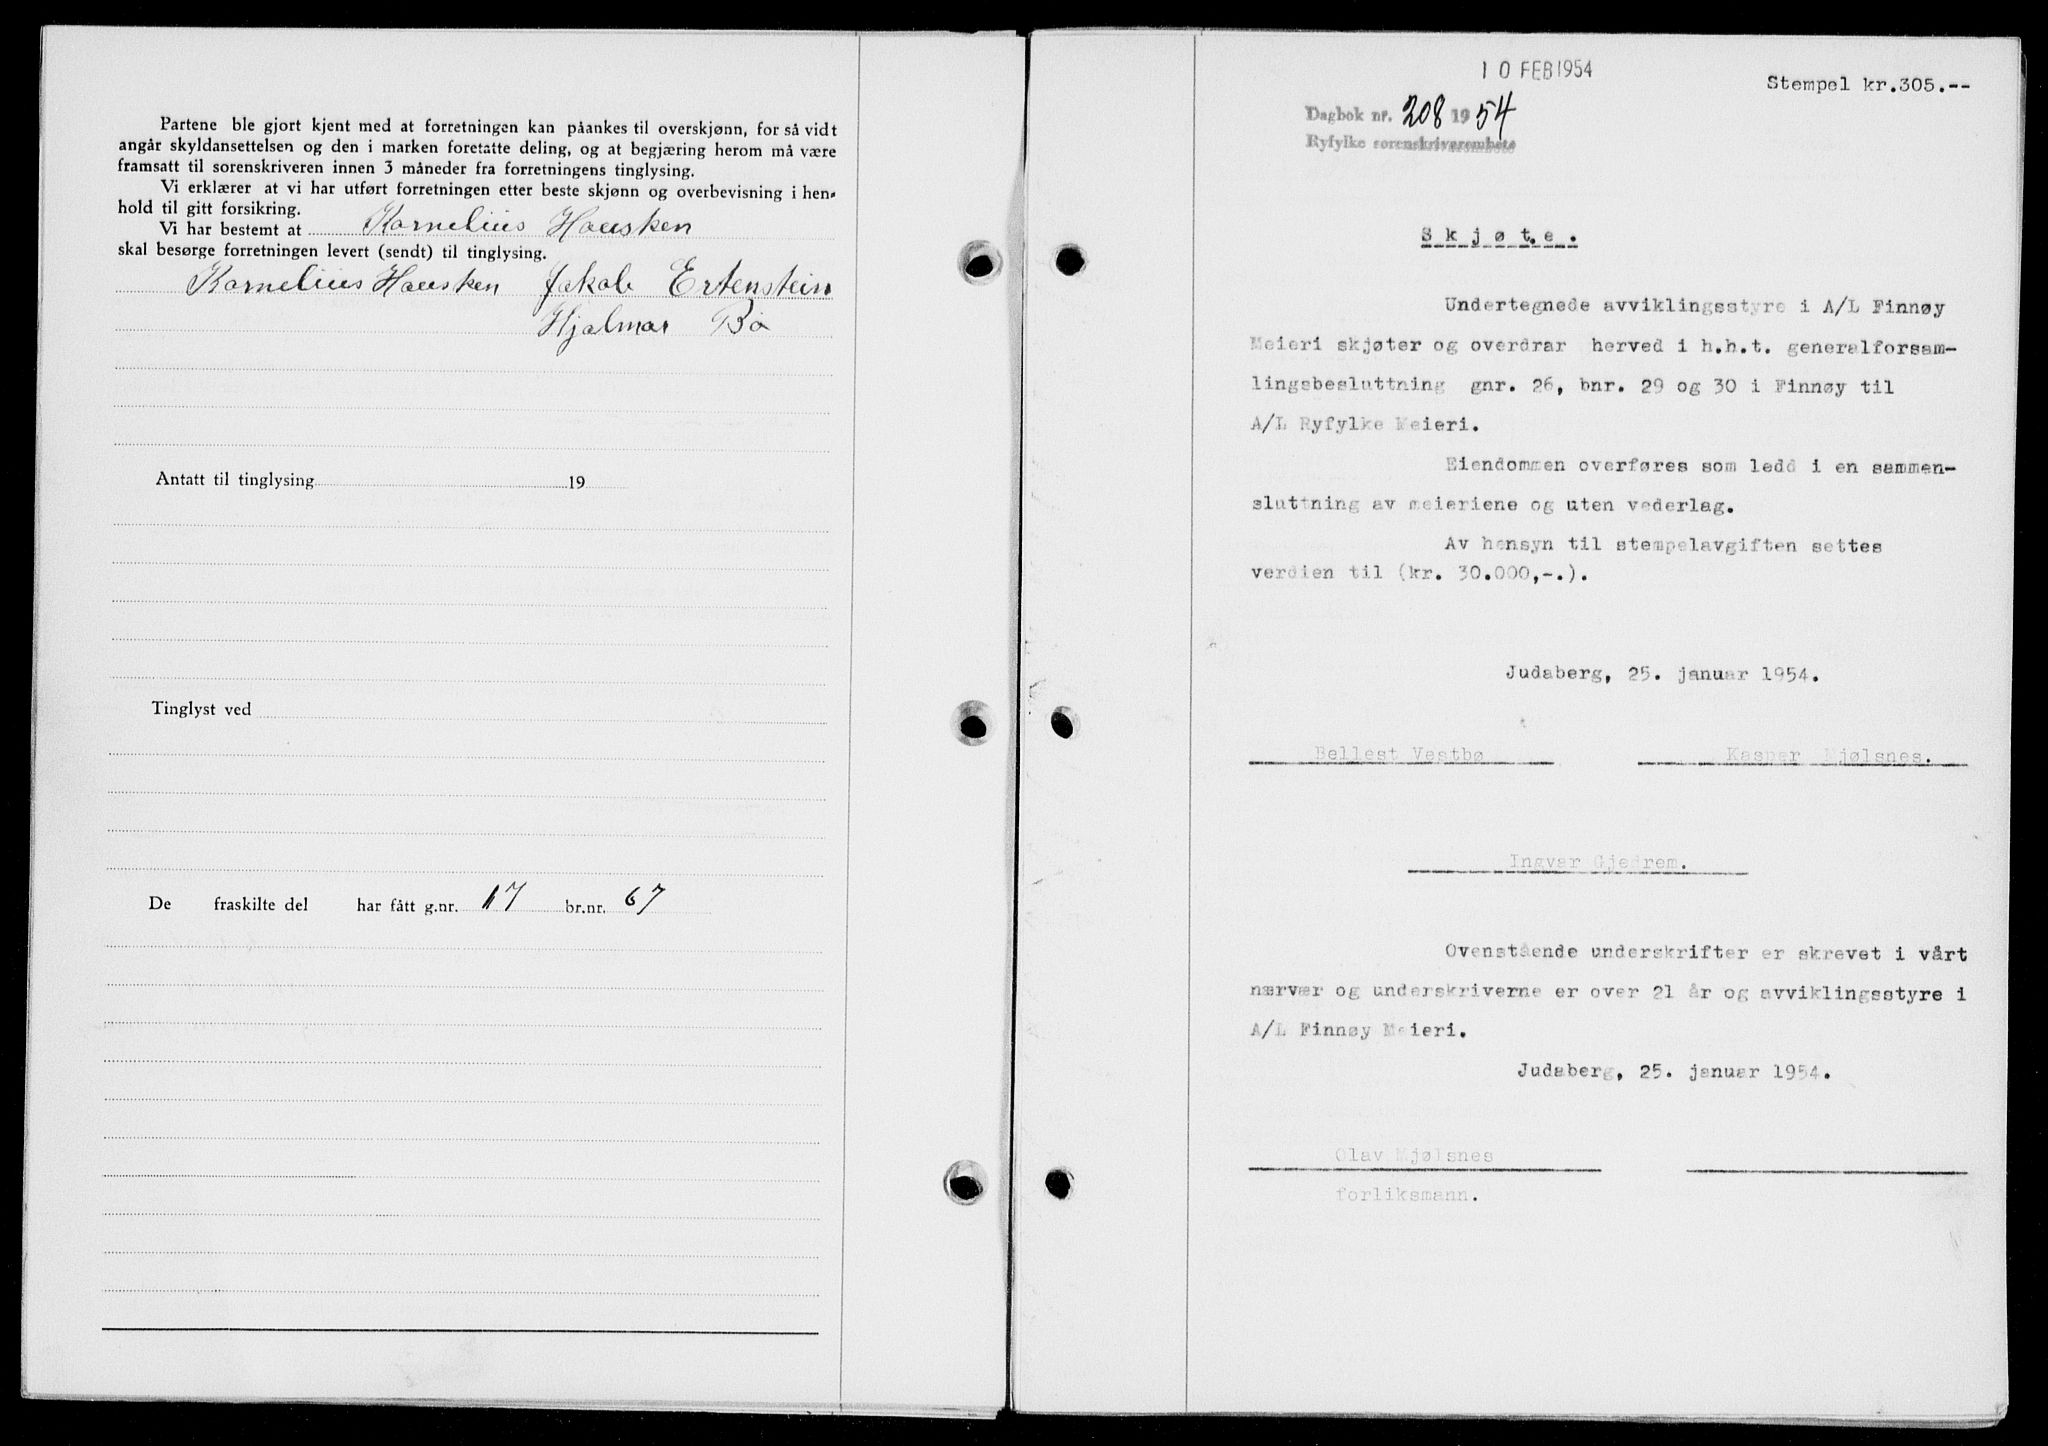 Partene ble gjort kjent med at forretningen kan påankes til overskjønn, for så vidt
angår skyldansettelsen og den i marken foretatte deling, og at begjæring herom må være
framsatt til sorenskriveren innen 3 måneder fra forretningens tinglysing.
Vi erklærer at vi har utført forretningen etter beste skjønn og overbevisning i hen-
hold til gitt forsikring.
Vi har bestemt at Kornelius Hausken
skal besørge forretningen levert (sendt) til tinglysing.
Kornelius Hausken Jakob Ertenstein
Hjalmar Bø
Antatt til tinglysing 19
Tinglyst ved
De fraskilte del har fått g.nr. 17 br.nr. 67
10 FEB 1954
Stempel kr.305.--
Dagbok nr. 208 1954
Ryfylke sorenskriverembete
Skjøte.
Undertegnede avviklingsstyre i A/L Finnøy
Meieri skjøter og overdrar herved i h.h.t. generalforsam-
lingsbesluttning gnr. 26, bnr. 29 og 30 i Finnøy til
A/L Ryfylke Meieri.
Eiendommen overføres som ledd i en sammen-
sluttning av meieriene og uten vederlag.
Av hensyn til stempelavgiften settes
verdien til (kr. 30.000,-.).
Judaberg, 25. januar 1954.
Bellest Vestbø Kasper Mjølsnes.
Ingvar Gjedrem.
Ovenstående underskrifter er skrevet i vårt
nærvær og underskriverne er over 21 år og avviklingsstyre i
A/L Finnøy Meieri.
Judaberg, 25. januar 1954.
Olav Mjølsnes
forliksmann.